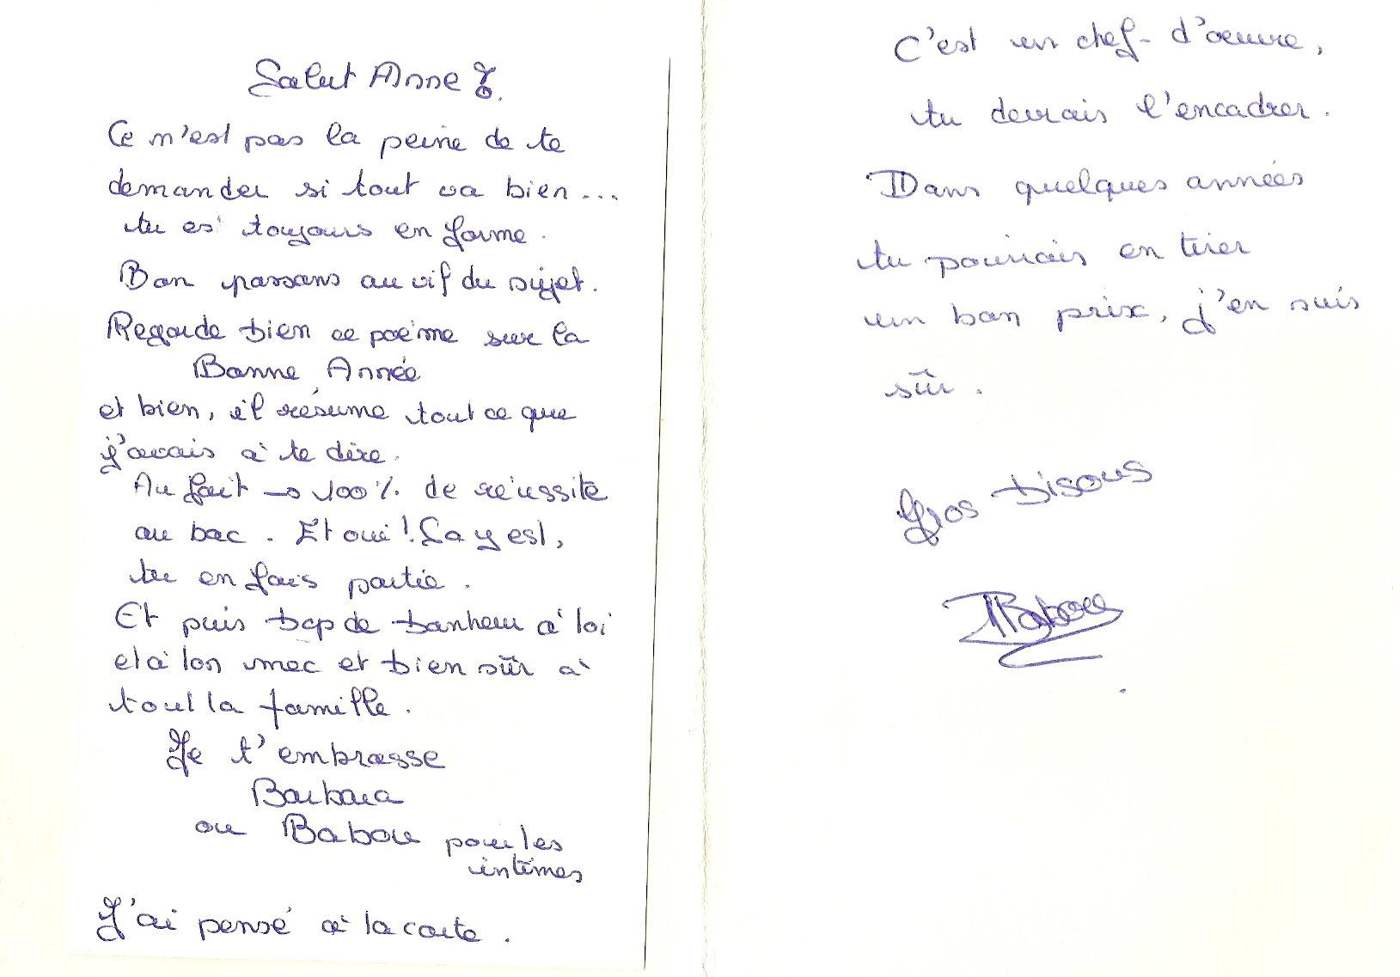 Salut Anne !
Ce n'est pas la peine de te
demander si tout va bien...
tu es toujours en forme.
Bon passons au vif du sujet.
Regarde bien ce poème sur la
Bonne Année
et bien, il résume tout ce que
j'avais à te dire.
Au fait → 100% de réussite
au bac. Et oui ! Ça y est,
tu en fais partie.
Et puis bcp de bonheur à toi
et à ton mec et bien sûr à
tout la famille.
Je t'embrasse
Barbara
ou Babou pour les
intimes
J'ai pensé à la carte.
C'est un chef-d'oeuvre,
tu devrais l'encadrer.
Dans quelques années
tu pourrais en tirer
un bon prix, j'en suis
sûr.
Gros bisous
Babou